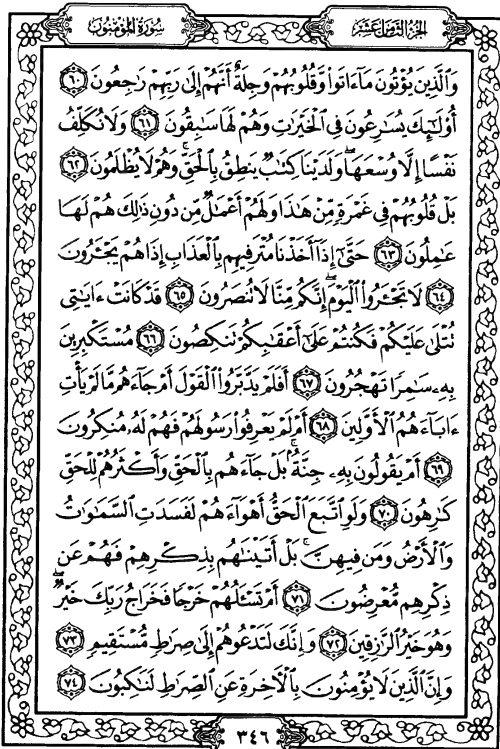 الجزء الثامن عشر
سورة المؤمنون
وَالَّذِينَ يُؤْتُونَ مَآ ءَاتَوا۟ وَّقُلُوبُهُمْ وَجِلَةٌ أَنَّهُمْ إِلَىٰ رَبِّهِمْ رَٰجِعُونَ ٦٠
أُو۟لَـٰٓئِكَ يُسَـٰرِعُونَ فِى ٱلْخَيْرَٰتِ وَهُمْ لَهَا سَـٰبِقُونَ ٦١ وَلَا نُكَلِّفُ
نَفْسًا إِلَّا وُسْعَهَا ۖ وَلَدَيْنَا كِتَـٰبٌ يَنطِقُ بِٱلْحَقِّ ۚ وَهُمْ لَا يُظْلَمُونَ ٦٢
بَلْ قُلُوبُهُمْ فِى غَمْرَةٍ مِّنْ هَـٰذَا وَلَهُمْ أَعْمَـٰلٌ مِّن دُونِ ذَٰلِكَ هُمْ لَهَا
عَـٰمِلُونَ ٦٣ حَتَّىٰٓ إِذَآ أَخَذْنَا مُتْرَفِيهِم بِٱلْعَذَابِ إِذَا هُمْ يَجْـَٔرُونَ
٦٤ لَا تَجْـَٔرُوا۟ ٱلْيَوْمَ ۖ إِنَّكُم مِّنَّا لَا تُنصَرُونَ ٦٥ قَدْ كَانَتْ ءَايَـٰتِى
تُتْلَىٰ عَلَيْكُمْ فَكُنتُمْ عَلَىٰٓ أَعْقَـٰبِكُمْ تَنكِصُونَ ٦٦ مُسْتَكْبِرِينَ
بِهِۦ سَـٰمِرًا تَهْجُرُونَ ٦٧ أَفَلَمْ يَدَّبَّرُوا۟ ٱلْقَوْلَ أَمْ جَآءَهُم مَّا لَمْ يَأْتِ
ءَابَآءَهُمُ ٱلْأَوَّلِينَ ٦٨ أَمْ لَمْ يَعْرِفُوا۟ رَسُولَهُمْ فَهُمْ لَهُۥ مُنكِرُونَ
٦٩ أَمْ يَقُولُونَ بِهِۦ جِنَّةٌۢ ۚ بَلْ جَآءَهُم بِٱلْحَقِّ وَأَكْثَرُهُمْ لِلْحَقِّ
كَـٰرِهُونَ ٧٠ وَلَوِ ٱتَّبَعَ ٱلْحَقُّ أَهْوَآءَهُمْ لَفَسَدَتِ ٱلسَّمَـٰوَٰتُ
وَٱلْأَرْضُ وَمَن فِيهِنَّ ۚ بَلْ أَتَيْنَـٰهُم بِذِكْرِهِمْ فَهُمْ عَن
ذِكْرِهِم مُّعْرِضُونَ ٧١ أَمْ تَسْـَٔلُهُمْ خَرْجًا فَخَرَاجُ رَبِّكَ خَيْرٌ ۖ
وَهُوَ خَيْرُ ٱلرَّٰزِقِينَ ٧٢ وَإِنَّكَ لَتَدْعُوهُمْ إِلَىٰ صِرَٰطٍ مُّسْتَقِيمٍ ٧٣
وَإِنَّ ٱلَّذِينَ لَا يُؤْمِنُونَ بِٱلْـَٔاخِرَةِ عَنِ ٱلصِّرَٰطِ لَنَـٰكِبُونَ ٧٤
٣٤٦